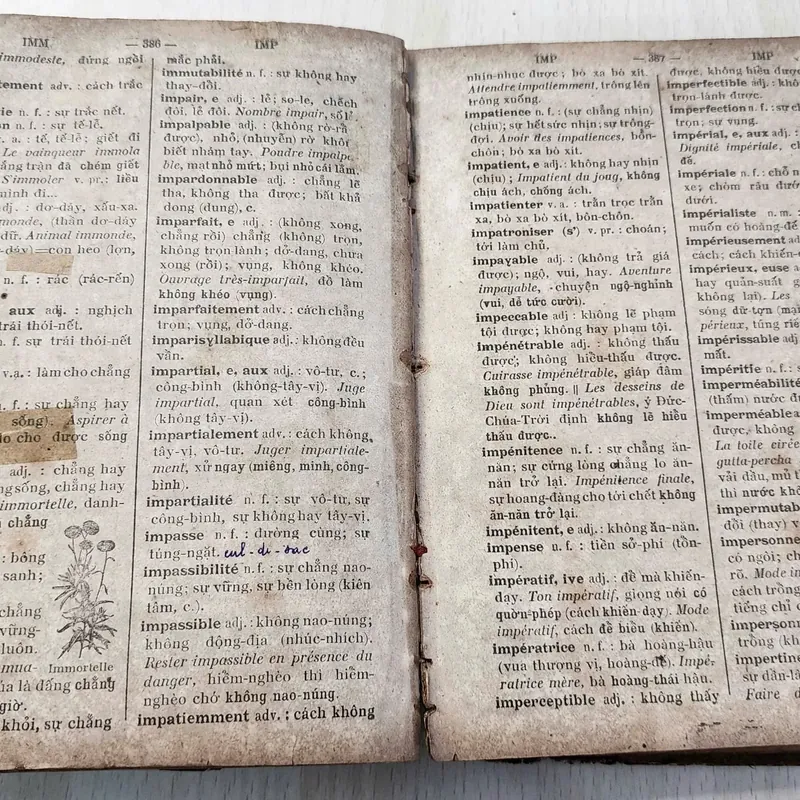 IMM — 386 — IMP
immodeste, đứng ngồi
tement adv. : cách trắc
rie n. f. : sự trắc nết.
on n. f. : sự tế-lễ.
r. a. : tế, tế-lễ ; giết đi
Le vainqueur immola
ắng trận đã chém giết
S'immoler v. pr.: liều
mình đi...
dj. : dơ-dáy, xấu-xa.
monde, (thần dơ-dáy
dữ. Animal immonde,
dáy) = con heo (lợn,
n. f. : rác (rác-rến)
aux adj. : nghịch
trái thói-nết.
n. f. sự trái thói-nết
v.a. : làm cho chẳng
n. f. : sự chẳng hay
sống). Aspirer à
cho được sống
adj. : chẳng hay
sống, chẳng hay
immortelle, danh-
chẳng
: bông
sanh ;
chẳng
vững-
luôn.
mua-
Immortelle
là đấng chẳng
giờ.
khỏi, sự chẳng
mắc phải.
immutabilité n. f. : sự không hay
thay-đổi.
impair, e adj. : lẻ ; so-le, chếch
đôi, lẻ đôi. Nombre impair, số lẻ
impalpable adj. : (không rờ-rẫ
được), nhỏ, (nhuyễn) rờ khôr
biết nhám tay. Poudre impalpa-
ble, mạt nhỏ mứt ; bụi nhỏ cái lắm.
impardonnable adj. : chẳng lẽ
tha, không tha được ; bất khả
dong (dung), c.
imparfait, e adj. : (không xong,
chẳng rồi) chẳng (không) trọn,
không trọn lành ; dở-dang, chưa
xong (rồi) ; vụng, không khéo.
Ouvrage très-imparfait, đồ làm
không khéo (vụng).
imparfaitement adv. : cách chẳng
trọn ; vụng, dở-dang.
imparisyllabique adj. : không đều
vần.
impartial, e, aux adj. : vô-tư, c. ;
công-bình (không-tây-vị). Juge
impartial, quan xét công-bình
(không tây-vị).
impartialement adv. : cách không
tây-vị, vô-tư. Juger impartiale-
ment, xử ngay (miêng, minh, công-
bình).
impartialité n. f. : sự vô-tư, sự
công-bình, sự không hay tây-vị.
impasse n. f. : đường cùng ; sự
túng-ngặt. cul-di-sac
impassibilité n. f. : sự chẳng nao-
núng ; sự vững, sự bền lòng (kiên
tâm, c.).
impassible adj. : không nao-núng ;
không động-địa (nhúc-nhích).
Rester impassible en présence du
danger, hiểm-nghèo thì hiểm-
nghèo chớ không nao-núng.
impatiemment adv. : cách không
IMP — 387 — IMP
nhịn-nhục được ; bò xa bò xít.
Attendre impatiemment, trông lên
trông xuống.
impatience n. f. : (sự chẳng nhịn)
(chịu) ; sự hết sức nhịn ; sự trông-
đợi. Avoir des impatiences, bồn-
chồn ; bò xa bò xít.
impatient, e adj. : không hay nhịn
(chịu) ; Impatient du joug, không
chịu ách, chống ách.
impatienter v. a. : trằn trọc trằn
xa, bò xa bò xít, bồn-chồn.
impatroniser (s') v. pr. : choán ;
tới làm chủ.
impayable adj. : (không trả giá
được) ; ngộ, vui, hay. Aventure
impayable, - chuyện ngộ-nghĩnh
(vui, dễ tức cười).
impeccable adj. : không lẽ phạm
tội được ; không hay phạm tội.
impénétrable adj. : không thấu
được ; không hiểu-thấu được.
Cuirasse impénétrable, giáp đâm
không phủng. || Les desseins de
Dieu sont impénétrables, ý Đức-
Chúa-Trời định không lẽ hiểu
thấu được..
impénitence n. f. : sự chẳng ăn-
năn ; sự cứng lòng chẳng lo ăn-
năn trở lại. Impénitence finale,
sự hoang-đàng cho tới chết không
ăn-năn trở lại.
impénitent, e adj. : không ăn-năn.
impense n. f. : tiền sở-phí (tổn-
phí).
impératif, ive adj. : đề mà khiến-
dạy. Ton impératif, giọng nói có
quờn-phép (cách khiến-dạy). Mode
impératif, cách đề biểu (khiến).
impératrice n. f. : bà hoàng-hậu
(vua thượng vị, hoàng-đế). Impé-
ratrice mère, bà hoàng-thái hậu.
imperceptible adj. : không thấy
được, không hiểu được
imperfectible adj. : chẳ
trọn-lành được.
imperfection n. f. : sự ch
trọn ; sự vụng.
impérial, e, aux adj.
Dignité impériale, ch
đế.
impériale n. f. : chỗ n
xe ; chòm râu dưới
dưới.
impérialiste n. m. :
muốn có hoàng-đế
impérieusement ad
cách ; cách khiến-
impérieux, euse ad
hay quản-suất gi
khiến). Les
sóng dữ-tợn (mạ
périeux, túng riế
impérissable adj.
mất.
impéritie n. f. :
imperméabilité
(thấm) nước đư
imperméable a
La toile cirée
gutta-percha
vải dầu, mủ t
thì nước khôn
impermutabl
đổi (thay) v
impersonnel
có ngôi ; ch
rõ. Mode in
cách trống
tiếng chỉ c
impersonn
trống (kh
impertine
sự dẫn-lâ
Faire d